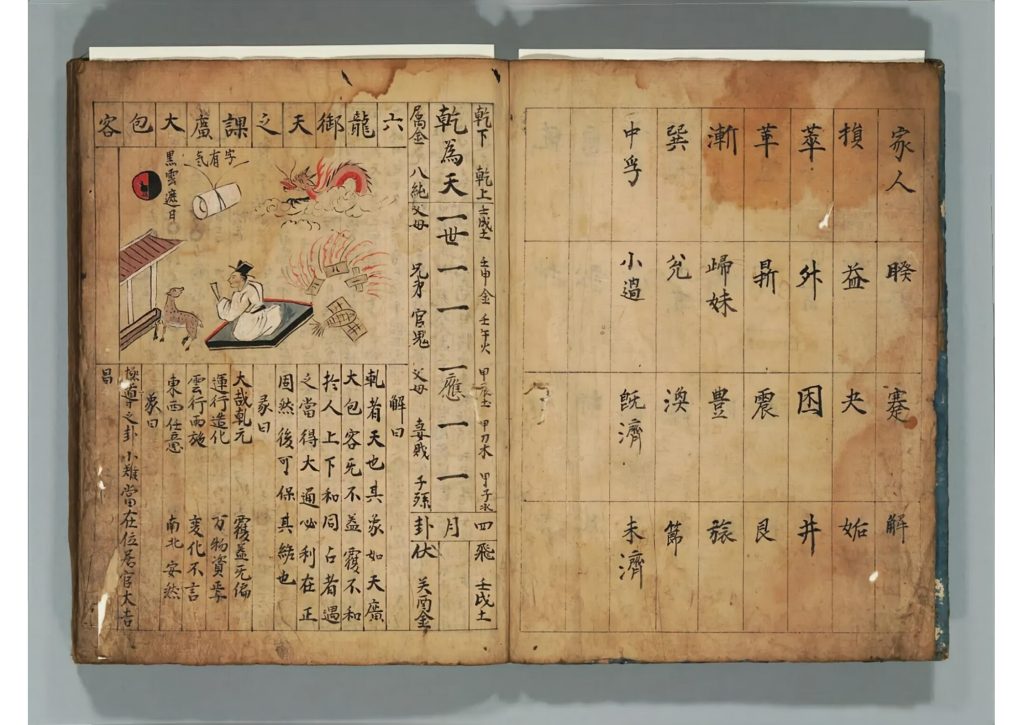 家人 睽 蹇 解
損 益 夬 姤
萃 升 困 井
革 鼎 震 艮
漸 歸妹 豊 旅
巽 兊 渙 節
中孚 小過 既濟 未濟
乾下 乾上 壬戌土 壬申金 壬午火 甲辰土 甲 木 甲子水 四 飛 壬戌土
乾為天 一世 一 一 一應 一 一 月
属金 八純 父母 兄弟 官鬼 父母 妻財 子孫 卦 伏 癸酉金
六龍御天之課廣大包容
字有気
黑雲遮日
解曰
乾者天也其象如天廣
大包容无不盖覆不和
扵人上下和同占者遇
之當得大通必利在正
周然後可保其終也
彖曰
大哉乾元 覆盖无偏
運行造化 万物資
雲行雨施 変化不言
東西任意 南北安然
象曰
之卦小雉當在位居官大吉
昌